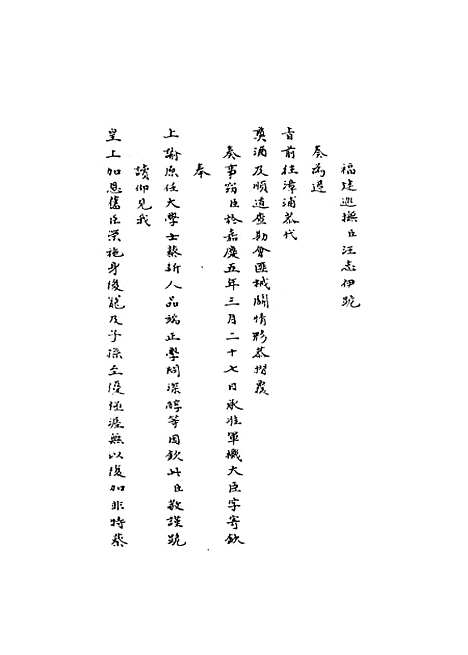 福建巡撫臣汪志伊跪
奏為遵
旨前往漳浦恭代
奠酒及順道查勘會匪械鬬情形恭摺覆
奏事竊臣於嘉慶五年三月二十七日承准軍機大臣字寄欽
奉
上諭原任大學士蔡新人品端正學問深醇等因欽此臣敬謹跪
讀仰見我
皇上加恩舊臣榮施身後寵及子孫至優極渥無以復加非特蔡